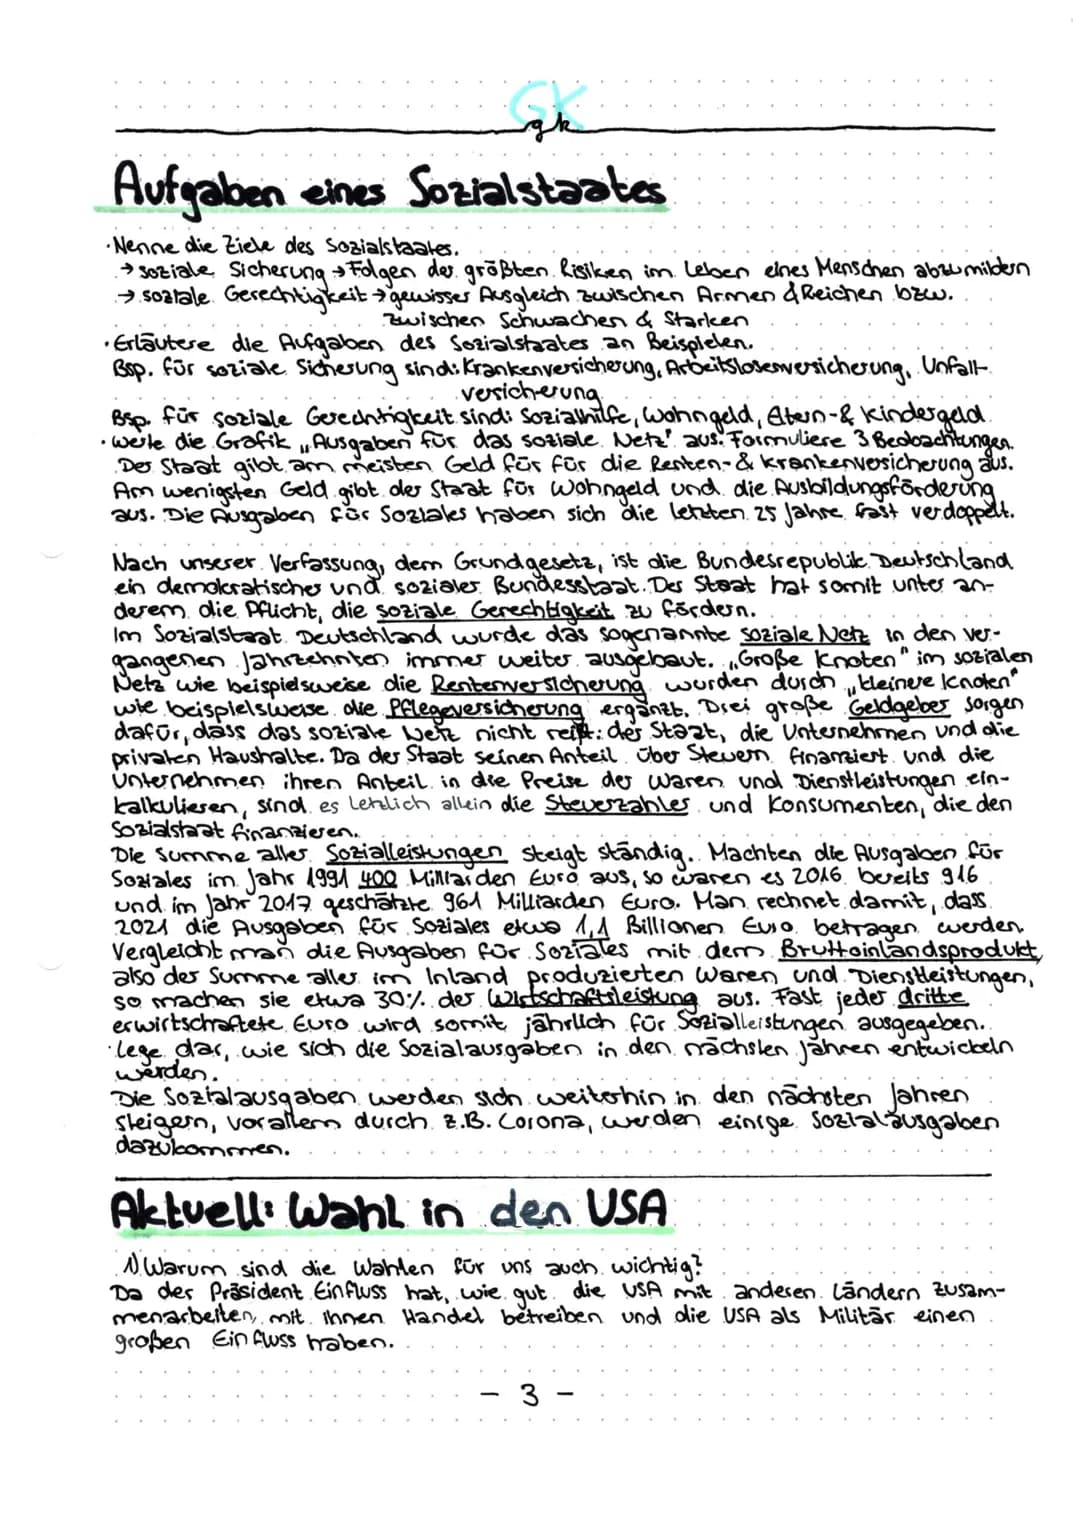 GK
gk
Aufgaben eines Sozialstaates
· Nenne die Ziele des Sozialstaates.
→ soziale Sicherung → Folgen der größten Risiken im Leben eines Menschen abzumildern
→ soziale Gerechtigkeit → gewisser Ausgleich zwischen Armen & Reichen bzw.
zwischen Schwachen & Starken
· Erläutere die Aufgaben des Sozialstaates an Beispielen.
Bsp. für soziale Sicherung sind: Krankenversicherung, Arbeitslosenversicherung, Unfall-
versicherung
Bsp. für soziale Gerechtigkeit sind: Sozialhilfe, Wohngeld, Eltern-& Kindergeld
· Werte die Grafik „Ausgaben für das soziale Netz" aus. Formuliere 3 Beobachtungen.
Der Staat gibt am meisten Geld für für die Renten-& Krankenversicherung aus.
Am wenigsten Geld gibt der Staat für Wohngeld und die Ausbildungsförderung
aus. Die Ausgaben für Soziales haben sich die letzten 25 Jahre fast verdoppelt.
Nach unserer Verfassung, dem Grundgesetz, ist die Bundesrepublik Deutschland
ein demokratischer und sozialer Bundesstaat. Der Staat hat somit unter an-
derem die Pflicht, die soziale Gerechtigkeit zu fördern.
Im Sozialstaat Deutschland wurde das sogenannte soziale Netz in den ver-
gangenen Jahrzehnten immer weiter ausgebaut. „Große Knoten" im sozialen
Netz wie beispielsweise die Rentenversicherung wurden durch „kleinere Knoten"
wie beispielsweise die Pflegeversicherung ergänzt. Drei große Geldgeber sorgen
dafür, dass das soziale Netz nicht reißt: der Staat, die Unternehmen und die
privaten Haushalte. Da der Staat seinen Anteil über Steuern finanziert und die
Unternehmen ihren Anteil in die Preise der Waren und Dienstleistungen ein-
kalkulieren, sind es letzlich allein die Steuerzahler und Konsumenten, die den
Sozialstaat finanzieren.
Die Summe aller Sozialleistungen steigt ständig. Machten die Ausgaben für
Soziales im Jahr 1991 400 Milliarden Euro aus, so waren es 2016 bereits 916
und im Jahr 2017 geschätzte 961 Milliarden Euro. Man rechnet damit, dass
2021 die Ausgaben für Soziales etwa 1,1 Billionen Euro betragen werden.
Vergleicht man die Ausgaben für Soziales mit dem Bruttoinlandsprodukt,
also der Summe aller im Inland produzierten Waren und Dienstleistungen,
so machen sie etwa 30% der Wirtschaftsleistung aus. Fast jeder dritte
erwirtschaftete Euro wird somit jährlich für Sozialleistungen ausgegeben.
· Lege dar, wie sich die Sozialausgaben in den nächsten Jahren entwickeln
werden.
Die Sozialausgaben werden sich weiterhin in den nächsten Jahren
steigern, vorallem durch z.B. Corona, werden einige Sozialausgaben
dazukommen.
Aktuell: Wahl in den USA
1) Warum sind die Wahlen für uns auch wichtig?
Da der Präsident Einfluss hat, wie gut die USA mit anderen Ländern zusam-
menarbeiten, mit ihnen Handel betreiben und die USA als Militär einen
großen Einfluss haben.
- 3 -